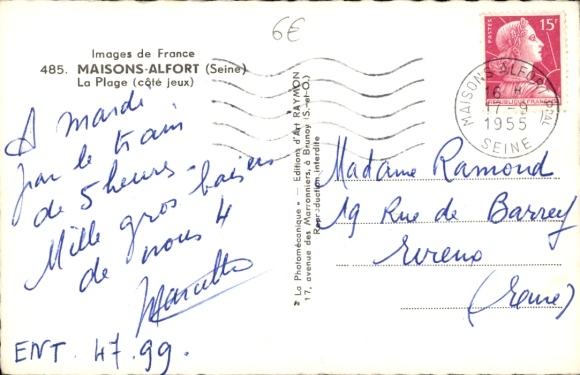 6€
Images de France
485. MAISONS-ALFORT (Seine)
La Plage (côté jeux)
A mardi
par le train
de 5 heures -
Mille gros baisers
de nous 4
ENT. 47.99.
" La Photomécanique " — Editions d'Art RAYMON
17, avenue des Marronniers, à Brunoy (S.-et-O.)
Reproduction interdite
POSTES 15F
REPUBLIQUE FRANÇAISE
MAISONS-ALFORT
16 H
1955
SEINE
Madame Ramond
19 Rue de Barrey
Evreux
(Eure)